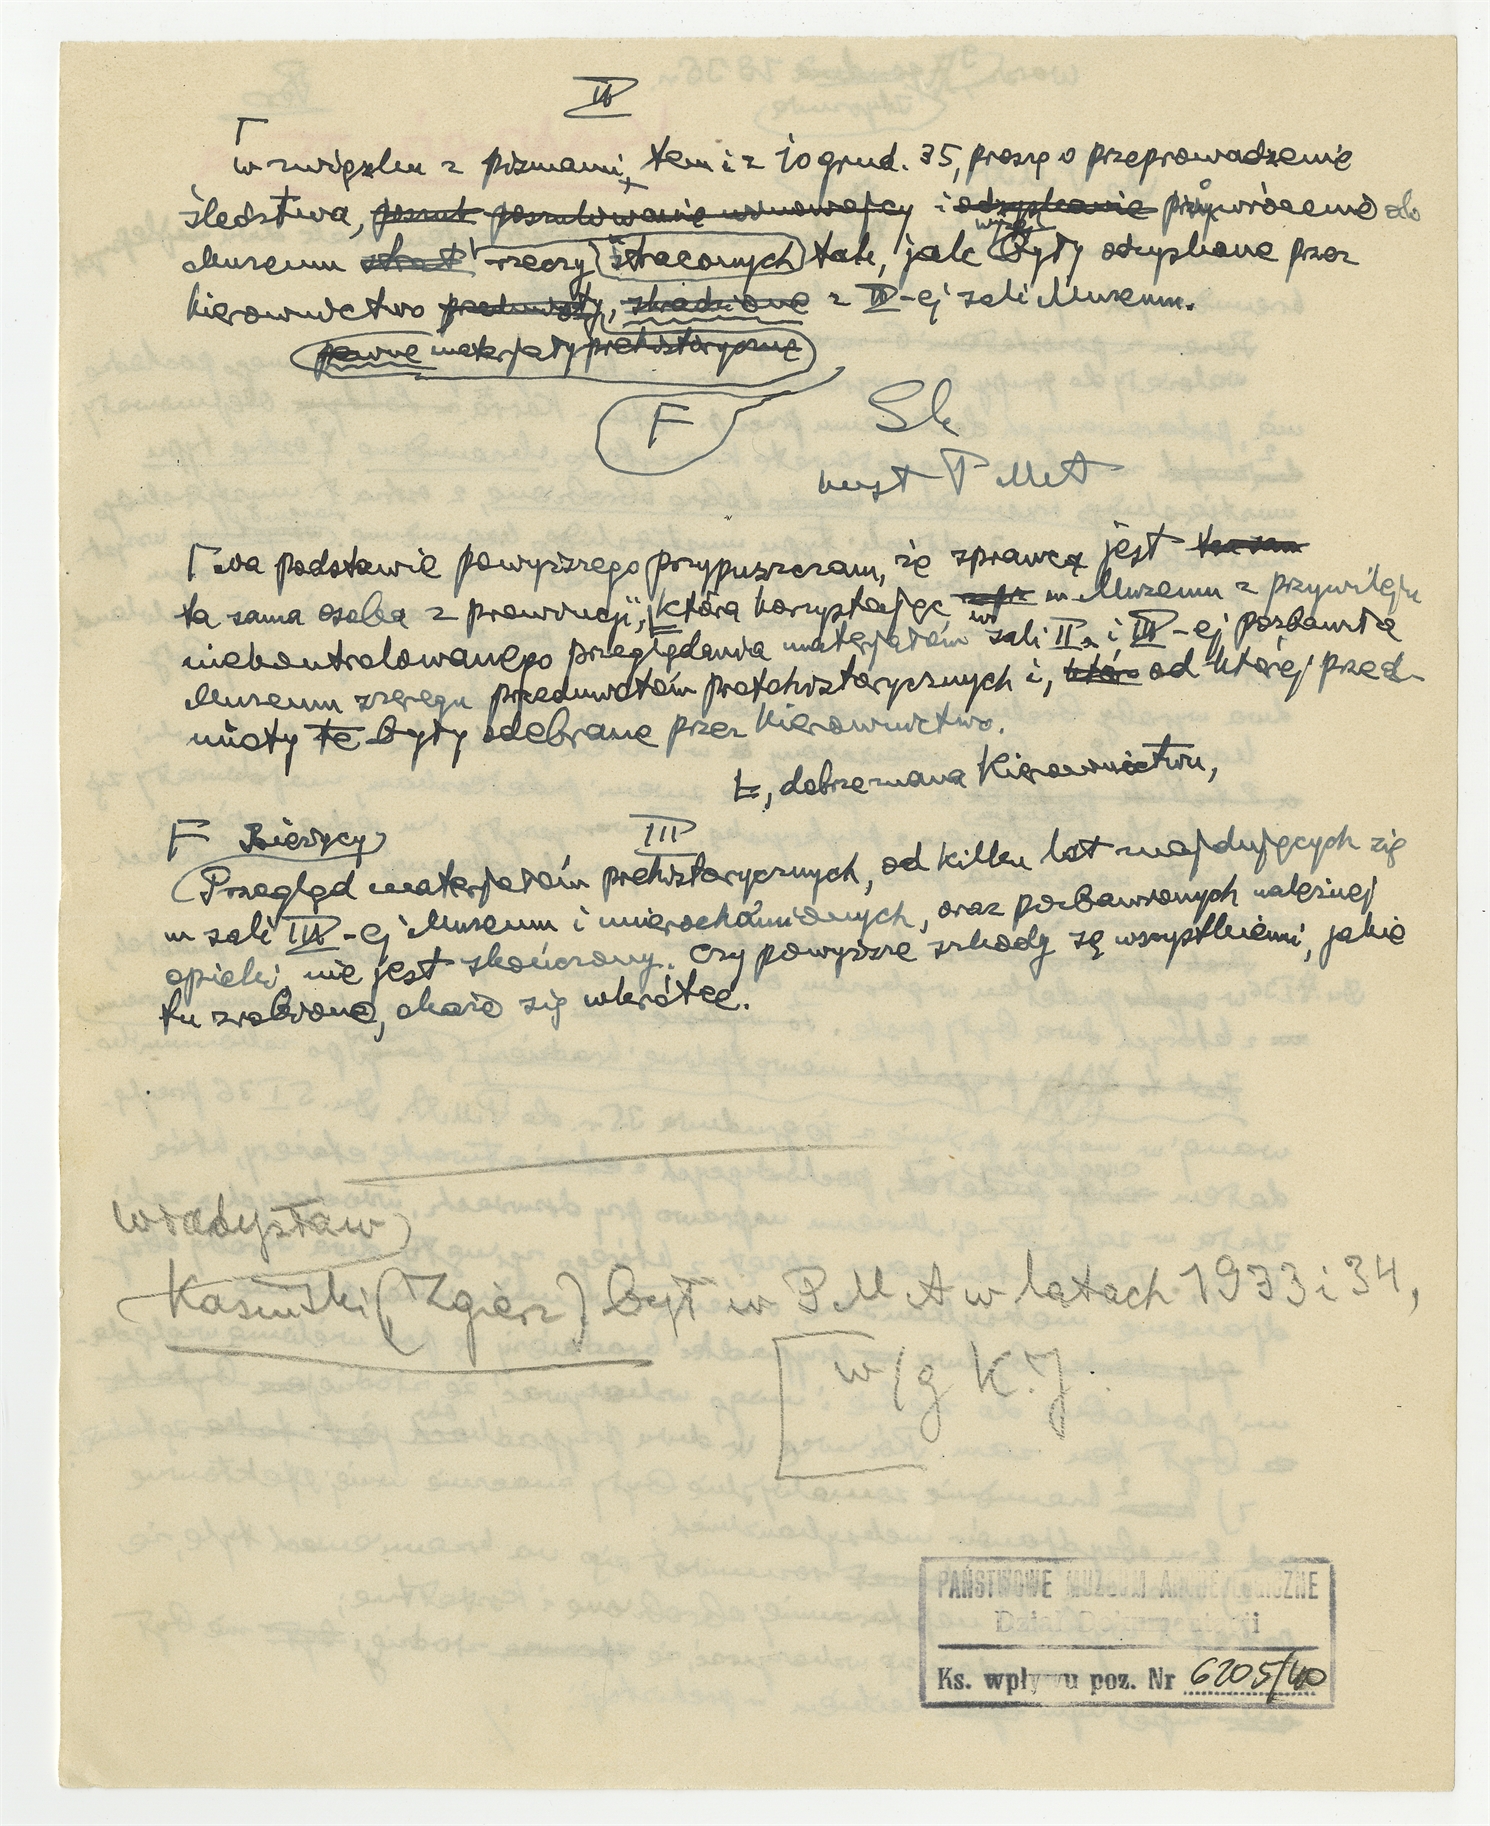 IV
w związku z pismami, tem i z 10 grud. 35, proszę o przeprowadzenie
śledztwa, poszuk poszukiwanie winowajcy i odzyskanie przywrócenie do
Muzeum strat rzeczy straconych tak, jak były odzyskane przez
kierownictwo przedmioty, skradzione z IV-ej sali Muzeum.
pewne materjały prehistoryczne
F
Sk
kust PMA
Na podstawie powyższego przypuszczam, że sprawcą jest ten sam
ta sama osoba z prowincji, która korzystając w Muzeum z przywileju
niekontrolowanego przeglądania materjałów w sali II i IV-ej pozbawiła
Muzeum szeregu przedmiotów protohistorycznych i, któr od której przed-
mioty te były odebrane przez Kierownictwo.
, dobrze znana Kierownictwu,
F Bieżący
III
Przegląd materjałów prehistorycznych, od kilku lat znajdujących się
w sali IV-ej Muzeum i nieochronionych, oraz pozbawionych należnej
opieki nie jest skończony. Czy powyższe szkody są wszystkiemi, jakie
tu zrobiono, okaże się wkrótce.
Władysław
Kasiński (Zgierz) był w PMA w latach 1933 i 34,
w/g K.J.
PAŃSTWOWE MUZEUM ARCHEOLOGICZNE
Dział Dokumentacji
Ks. wpływu poz. Nr 6205/40